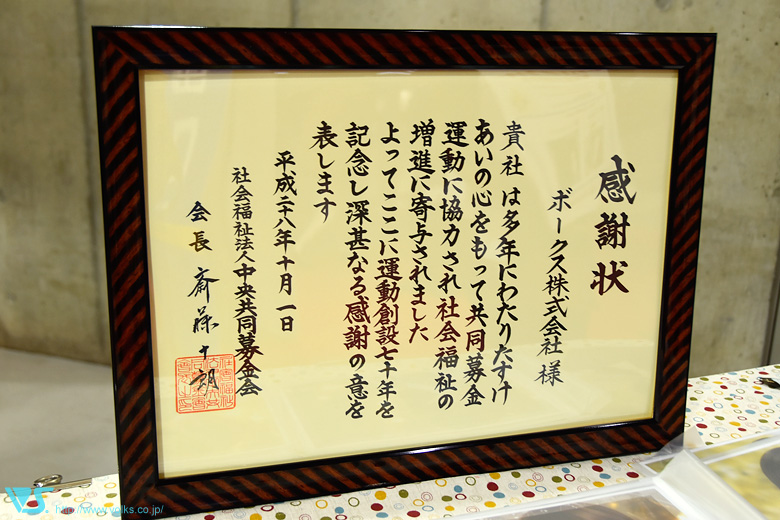 感謝状
ボークス株式会社 様
貴社 は多年にわたりたすけ
あいの心をもって共同募金
運動に協力され社会福祉の
増進に寄与されました
よってここに運動創設七十年を
記念し深甚なる感謝の意を
表します
平成二十八年十月一日
社会福祉法人中央共同募金会
会長 斎藤十朗
VS http://www.volks.co.jp/